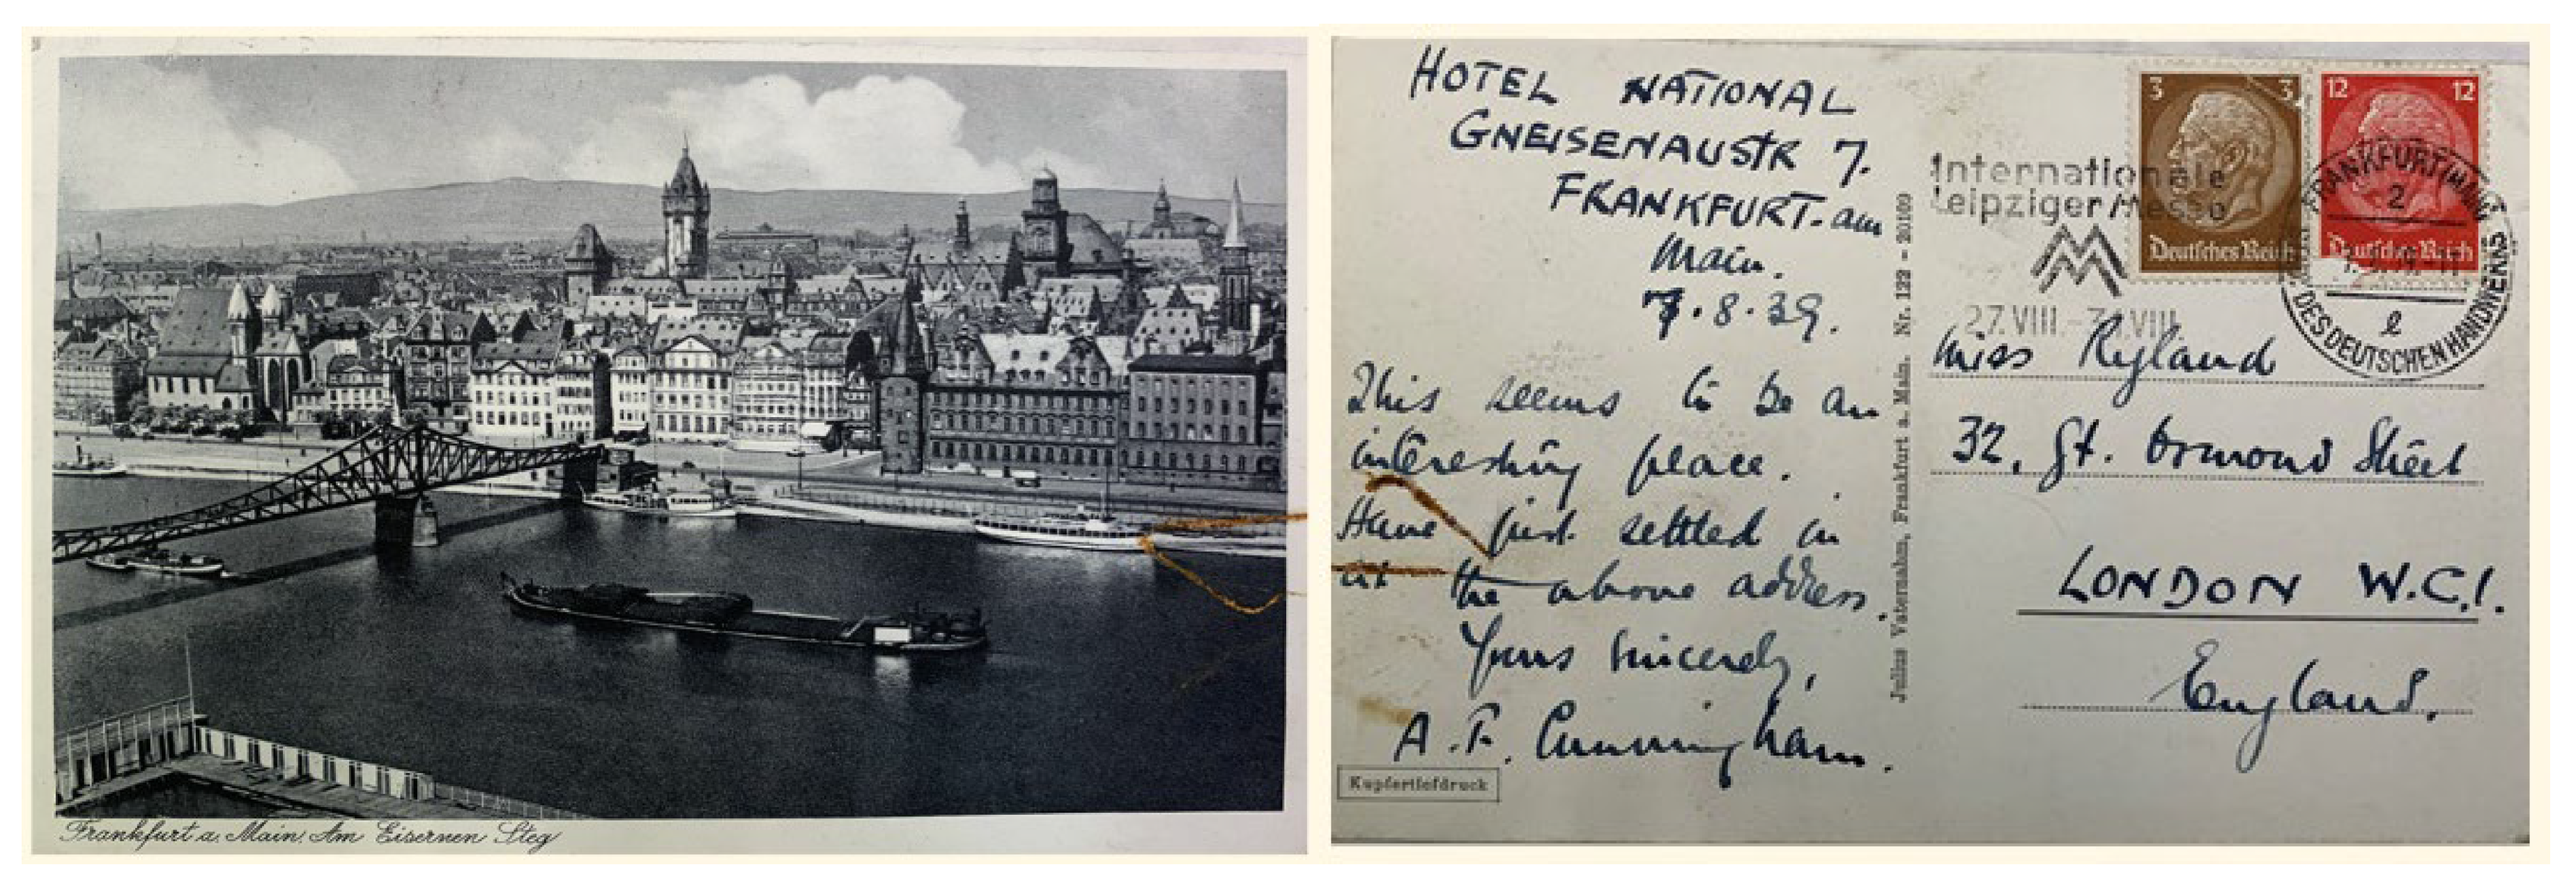 Frankfurt a. Main. Am Eisernen Steg
HOTEL NATIONAL
GNEISENAUSTR 7.
FRANKFURT. am
Main.
7.8.39.
This seems to be an
interesting place.
Have just settled in
at the above address.
Yours sincerely,
A.F. Cunningham.
Kupfertiefdruck
Julius Vaternahm, Frankfurt a. Main. Nr. 122 - 20109
Internationale
Leipziger Messe
27.VIII.-31.VIII.
3 3
Deutsches Reich
12 12
Deutsches Reich
FRANKFURT (MAIN)
2
e
DES DEUTSCHEN HANDWERKS
Miss Ryland
32, Gt. Ormond Street
LONDON W.C.1.
England.